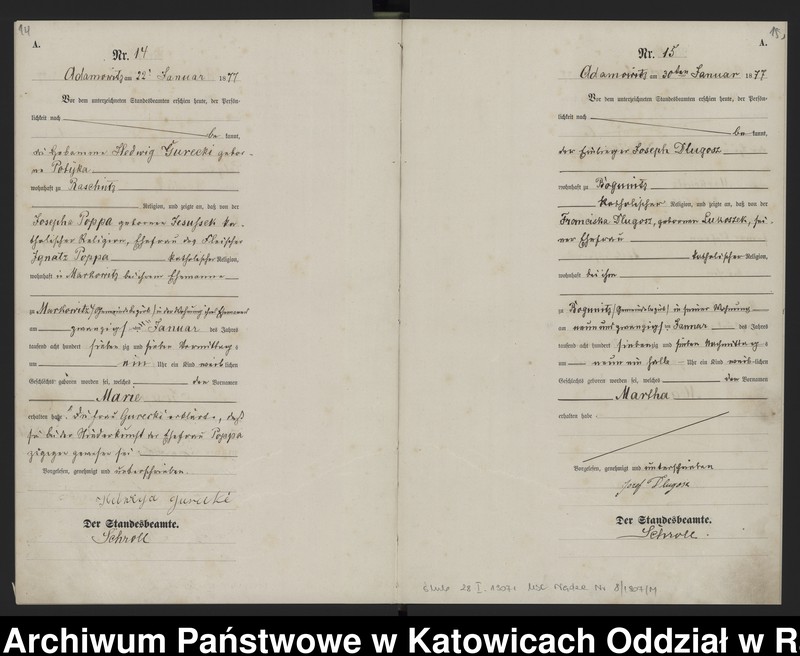 14
A.
Nr. 14
Adamowitz am 22ᵗ Januar 1877
Vor dem unterzeichneten Standesbeamten erschien heute, der Persön-
lichkeit nach
be kannt,
die Hebamme Hedwig Gurecki gebor-
ne Potyka
wohnhaft zu Raschütz
Religion, und zeigte an, daß von der
Josepha Poppa geborenen Jesussek ka-
tholischer Religion, Ehefrau des Fleischer
Ignatz Poppa katholischer Religion,
wohnhaft in Markowitz bei ihrem Ehemanne
zu Markowitz (Gemeindebezirk) in der Wohnung ihres Ehemannes
am zwanzigsten Januar des Jahres
tausend acht hundert sieben zig und sieben Vormittag s
um ein Uhr ein Kind weib lichen
Geschlechts geboren worden sei, welches den Vornamen
Marie
erhalten habe. Die Frau Gurecki erklärte, daß
sie bei der Niederkunft der Ehefrau Poppa
zugegen gewesen sei
Vorgelesen, genehmigt und unterschrieben.
Hedwiga Gurecki
Der Standesbeamte.
Schroll
15,
A.
Nr. 15
Adamowitz am 30ten Januar 1877
Vor dem unterzeichneten Standesbeamten erschien heute, der Persön-
lichkeit nach
be kannt,
der Einlieger Joseph Dlugosz
wohnhaft zu Bogunitz
katholischer Religion, und zeigte an, daß von der
Franciska Dlugosz, geborenen Lukoszek, sei-
ner Ehefrau
katholischer Religion,
wohnhaft bei ihm
zu Bogunitz (Gemeindebezirk) in seiner Wohnung
am neun und zwanzigsten Januar des Jahres
tausend acht hundert sieben zig und sieben Nachmittag s
um neun ein halb Uhr ein Kind weib lichen
Geschlechts geboren worden sei, welches den Vornamen
Martha
erhalten habe
Vorgelesen, genehmigt und unterschrieben
Josef Dlugosz
Der Standesbeamte.
Schroll.
28 I. 1907 USC Nr 8/1907/M
Archiwum Państwowe w Katowicach Oddział w R